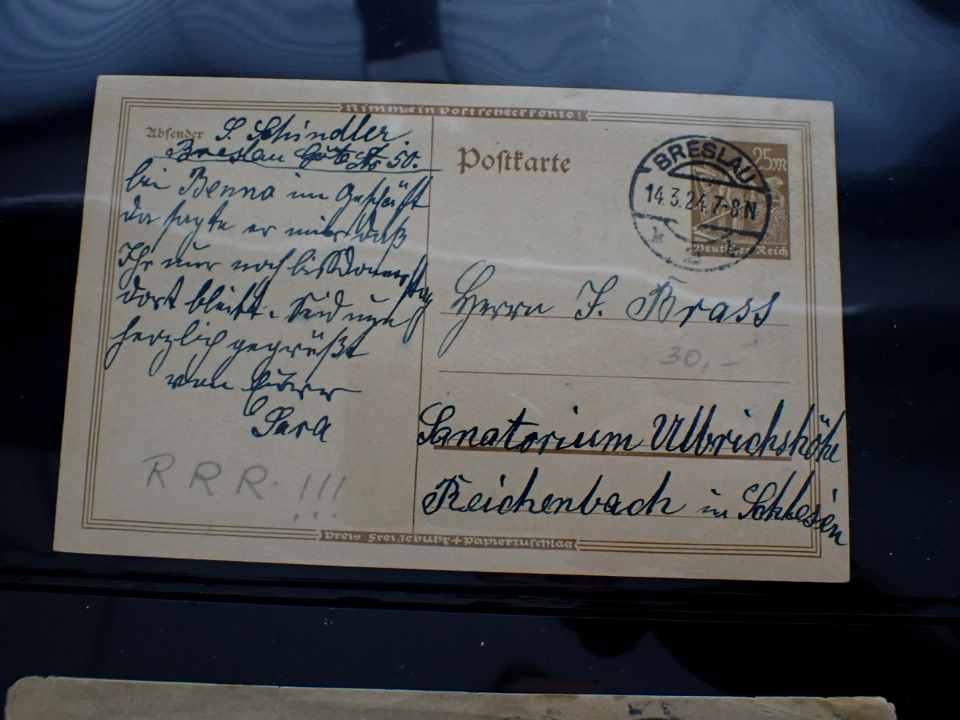 Nimm ein Postscheckkonto!
Absender S. Schindler.
Breslau Gäbitz Str 50.
bei Benno im Geschäft
da sagte er mir daß
Ihr nur noch bis Donnerstag
dort bleibt. Seid nun
herzlich gegrüßt
von Eurer
Sara
R R R !!!
Postkarte
BRESLAU
14.3.24.7-8N
25M
Deutsches Reich
Herrn J. Brass
30,-
Sanatorium Ulbrichshöhe
Reichenbach in Schlesien
Preis Freigebühr+Papierzuschlag